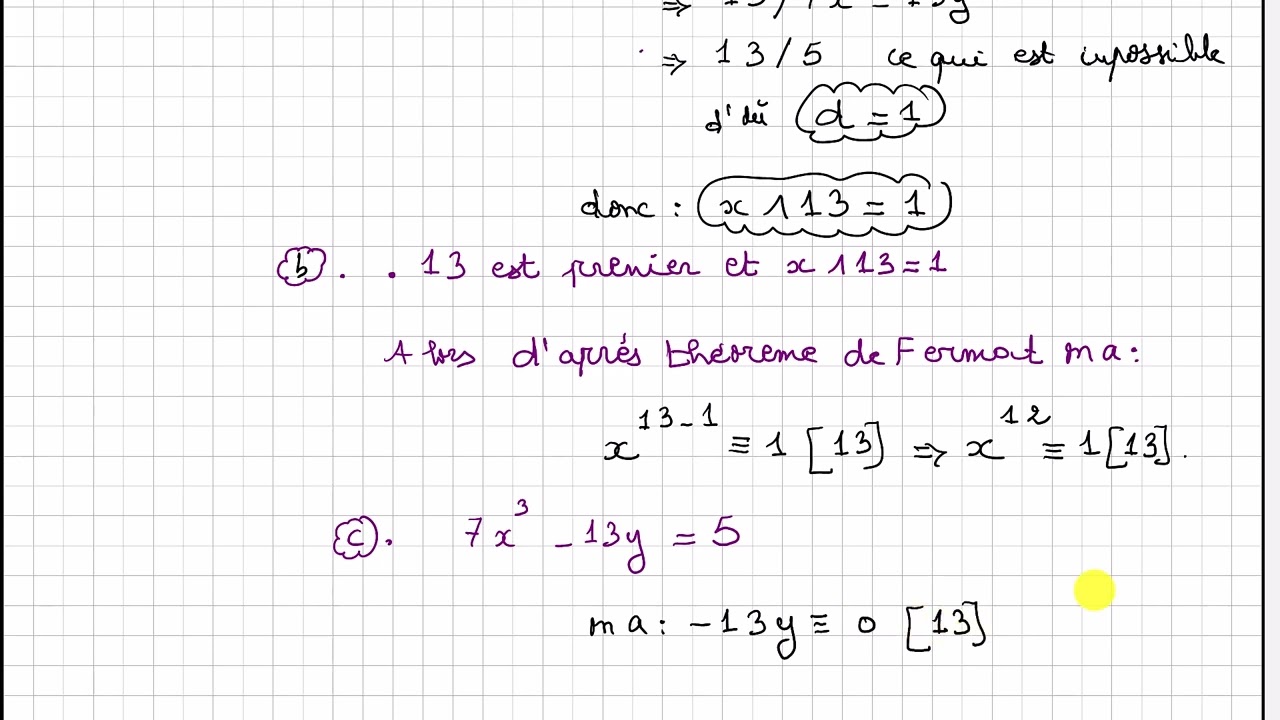 ⇒ 13/7x³ - 13y
⇒ 13/5 ce qui est impossible
d'où d = 1
donc : x ∧ 13 = 1
b. . 13 est premier et x ∧ 13 = 1
Alors d'aprés théoreme de Fermat on a :
x^{13-1} ≡ 1 [13] ⇒ x^{12} ≡ 1 [13].
c. 7x³ - 13y = 5
on a : -13y ≡ 0 [13]